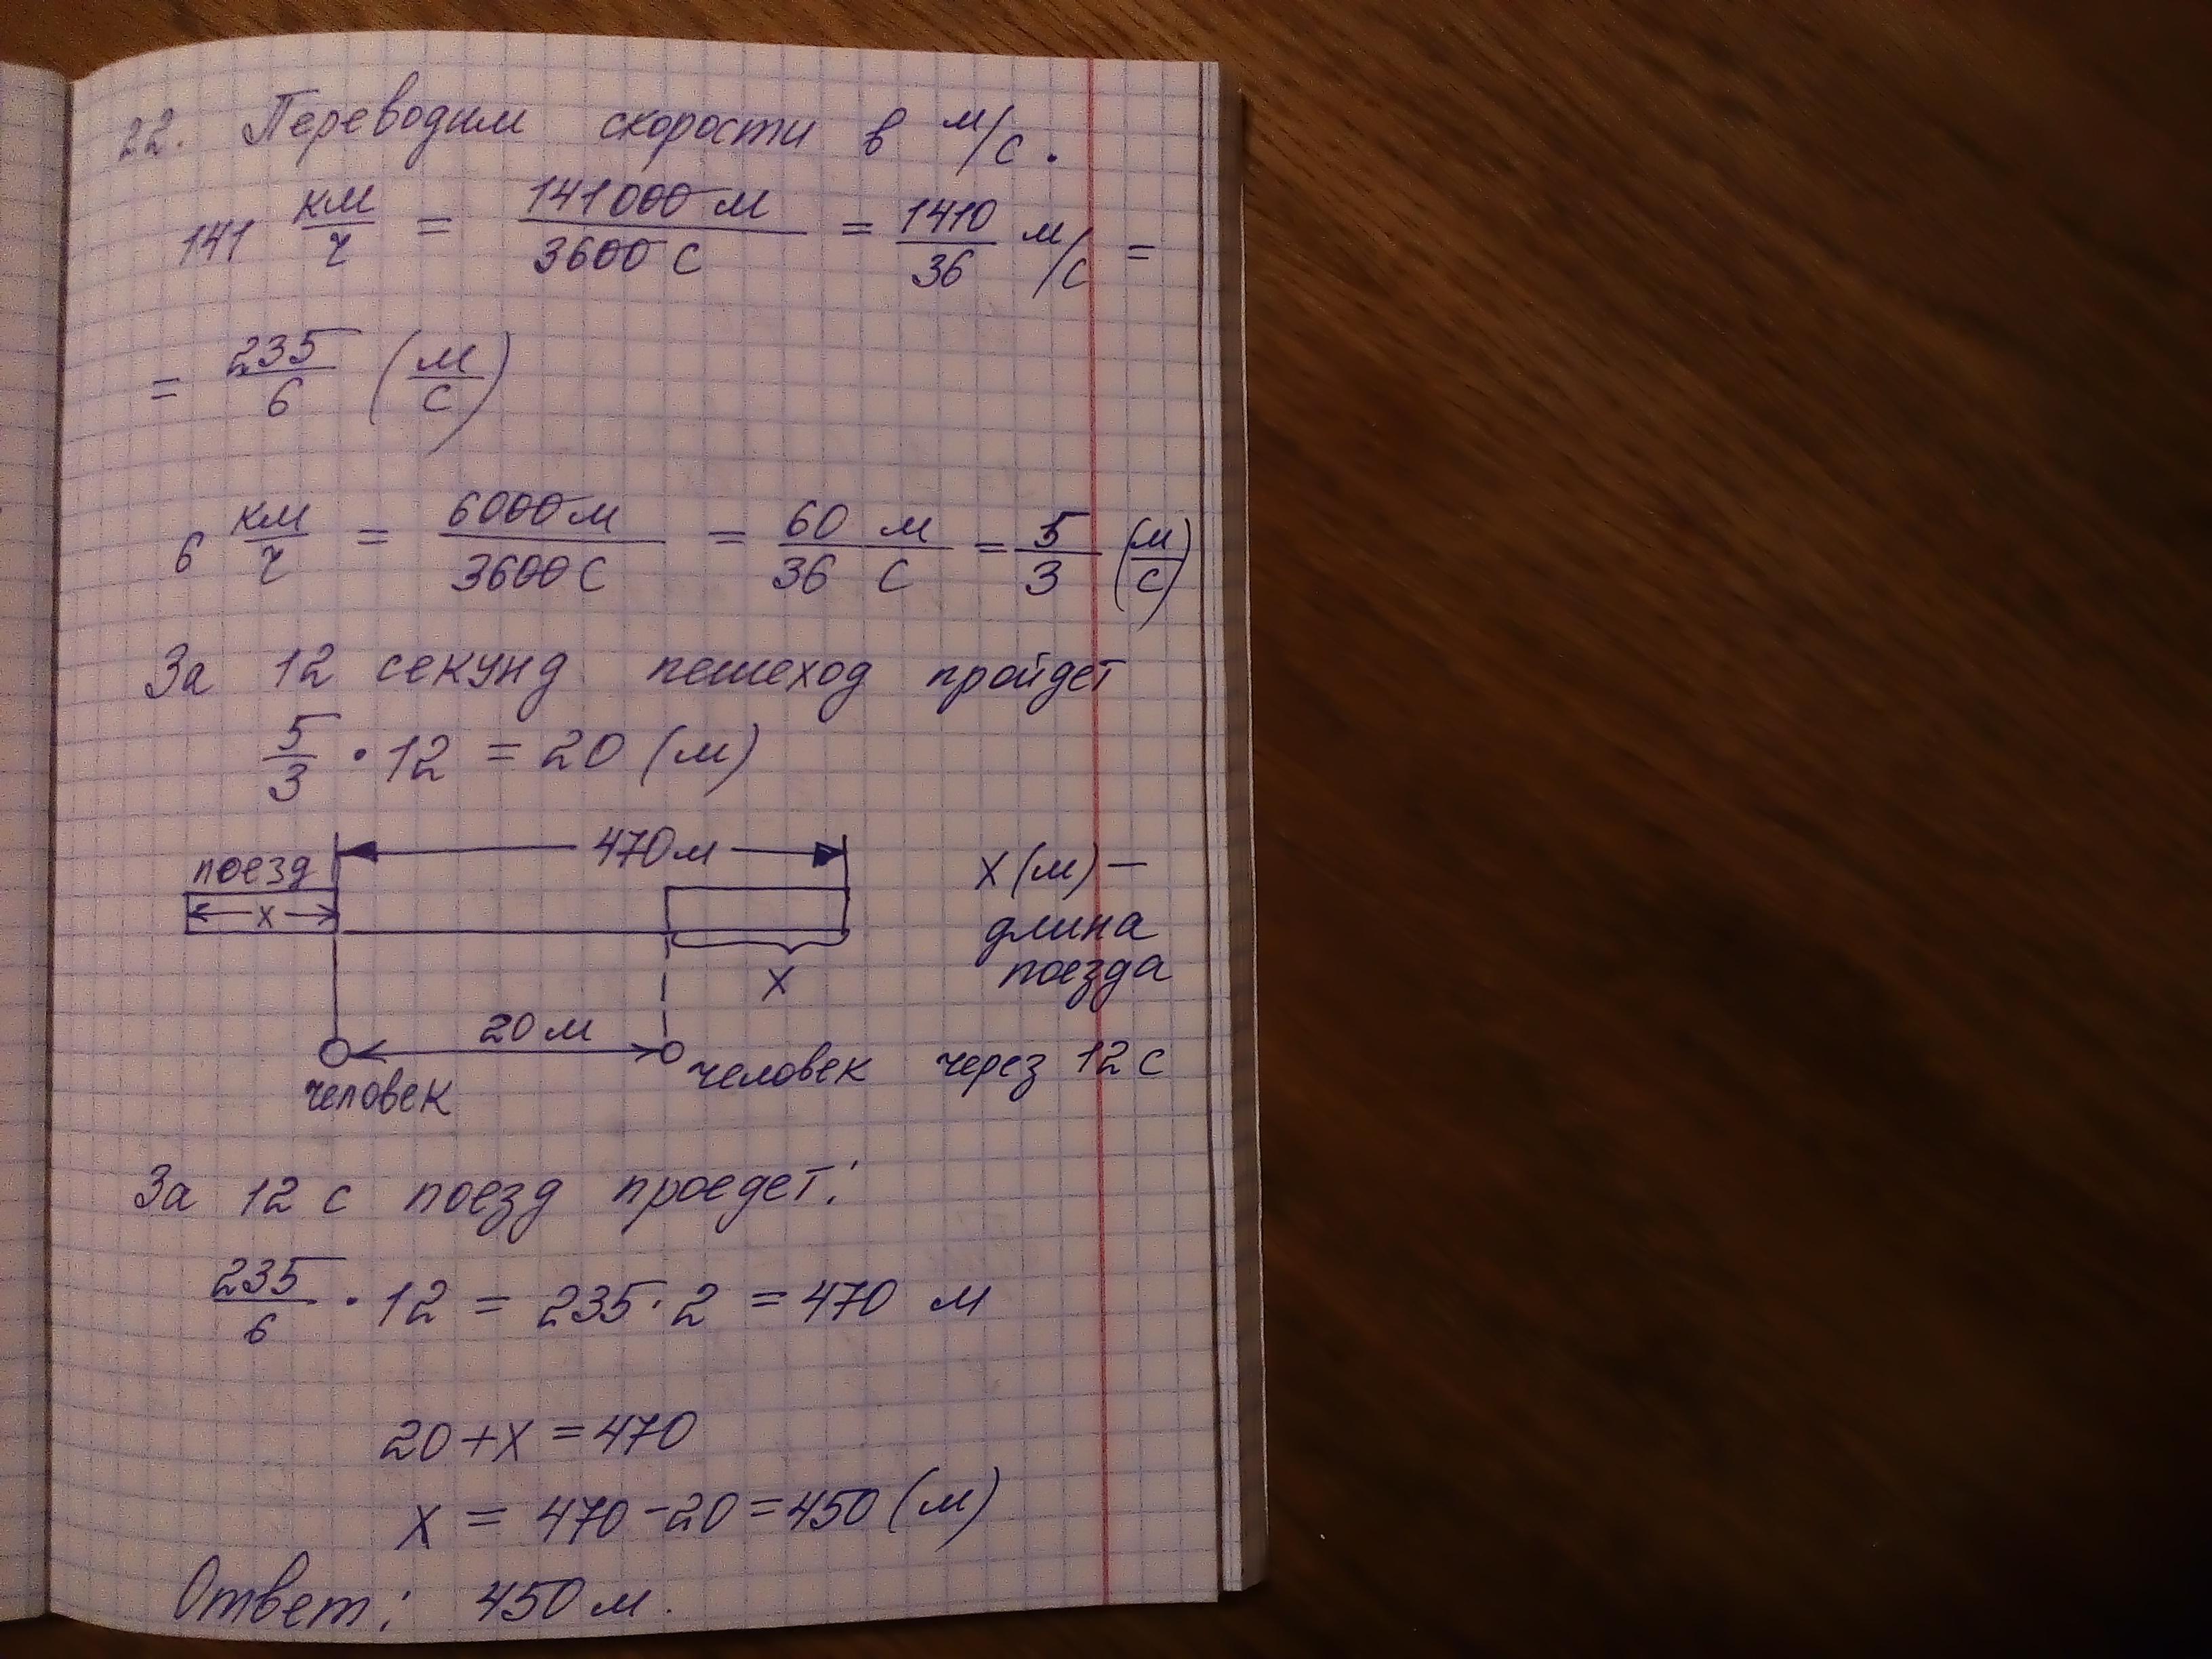 22. Переводим скорости в м/с.
141 км/ч = 141000 м/3600 с = 1410/36 м/с =
= 235/6 (м/с)
6 км/ч = 6000 м/3600 с = 60 м/36 с = 5/3 (м/с)
За 12 секунд пешеход пройдет
5/3 · 12 = 20 (м)
470 м
поезд
x
x (м) —
длина
поезда
x
20 м
человек
человек через 12 с
За 12 с поезд проедет:
235/6 · 12 = 235 · 2 = 470 м
20 + x = 470
x = 470 - 20 = 450 (м)
Ответ: 450 м.